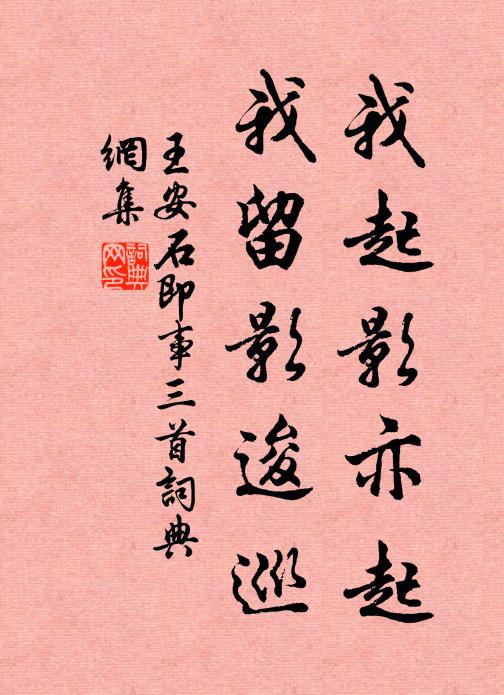 我起影亦起
我留影逡巡
王安石即事三首詞典
網集
詞典網印